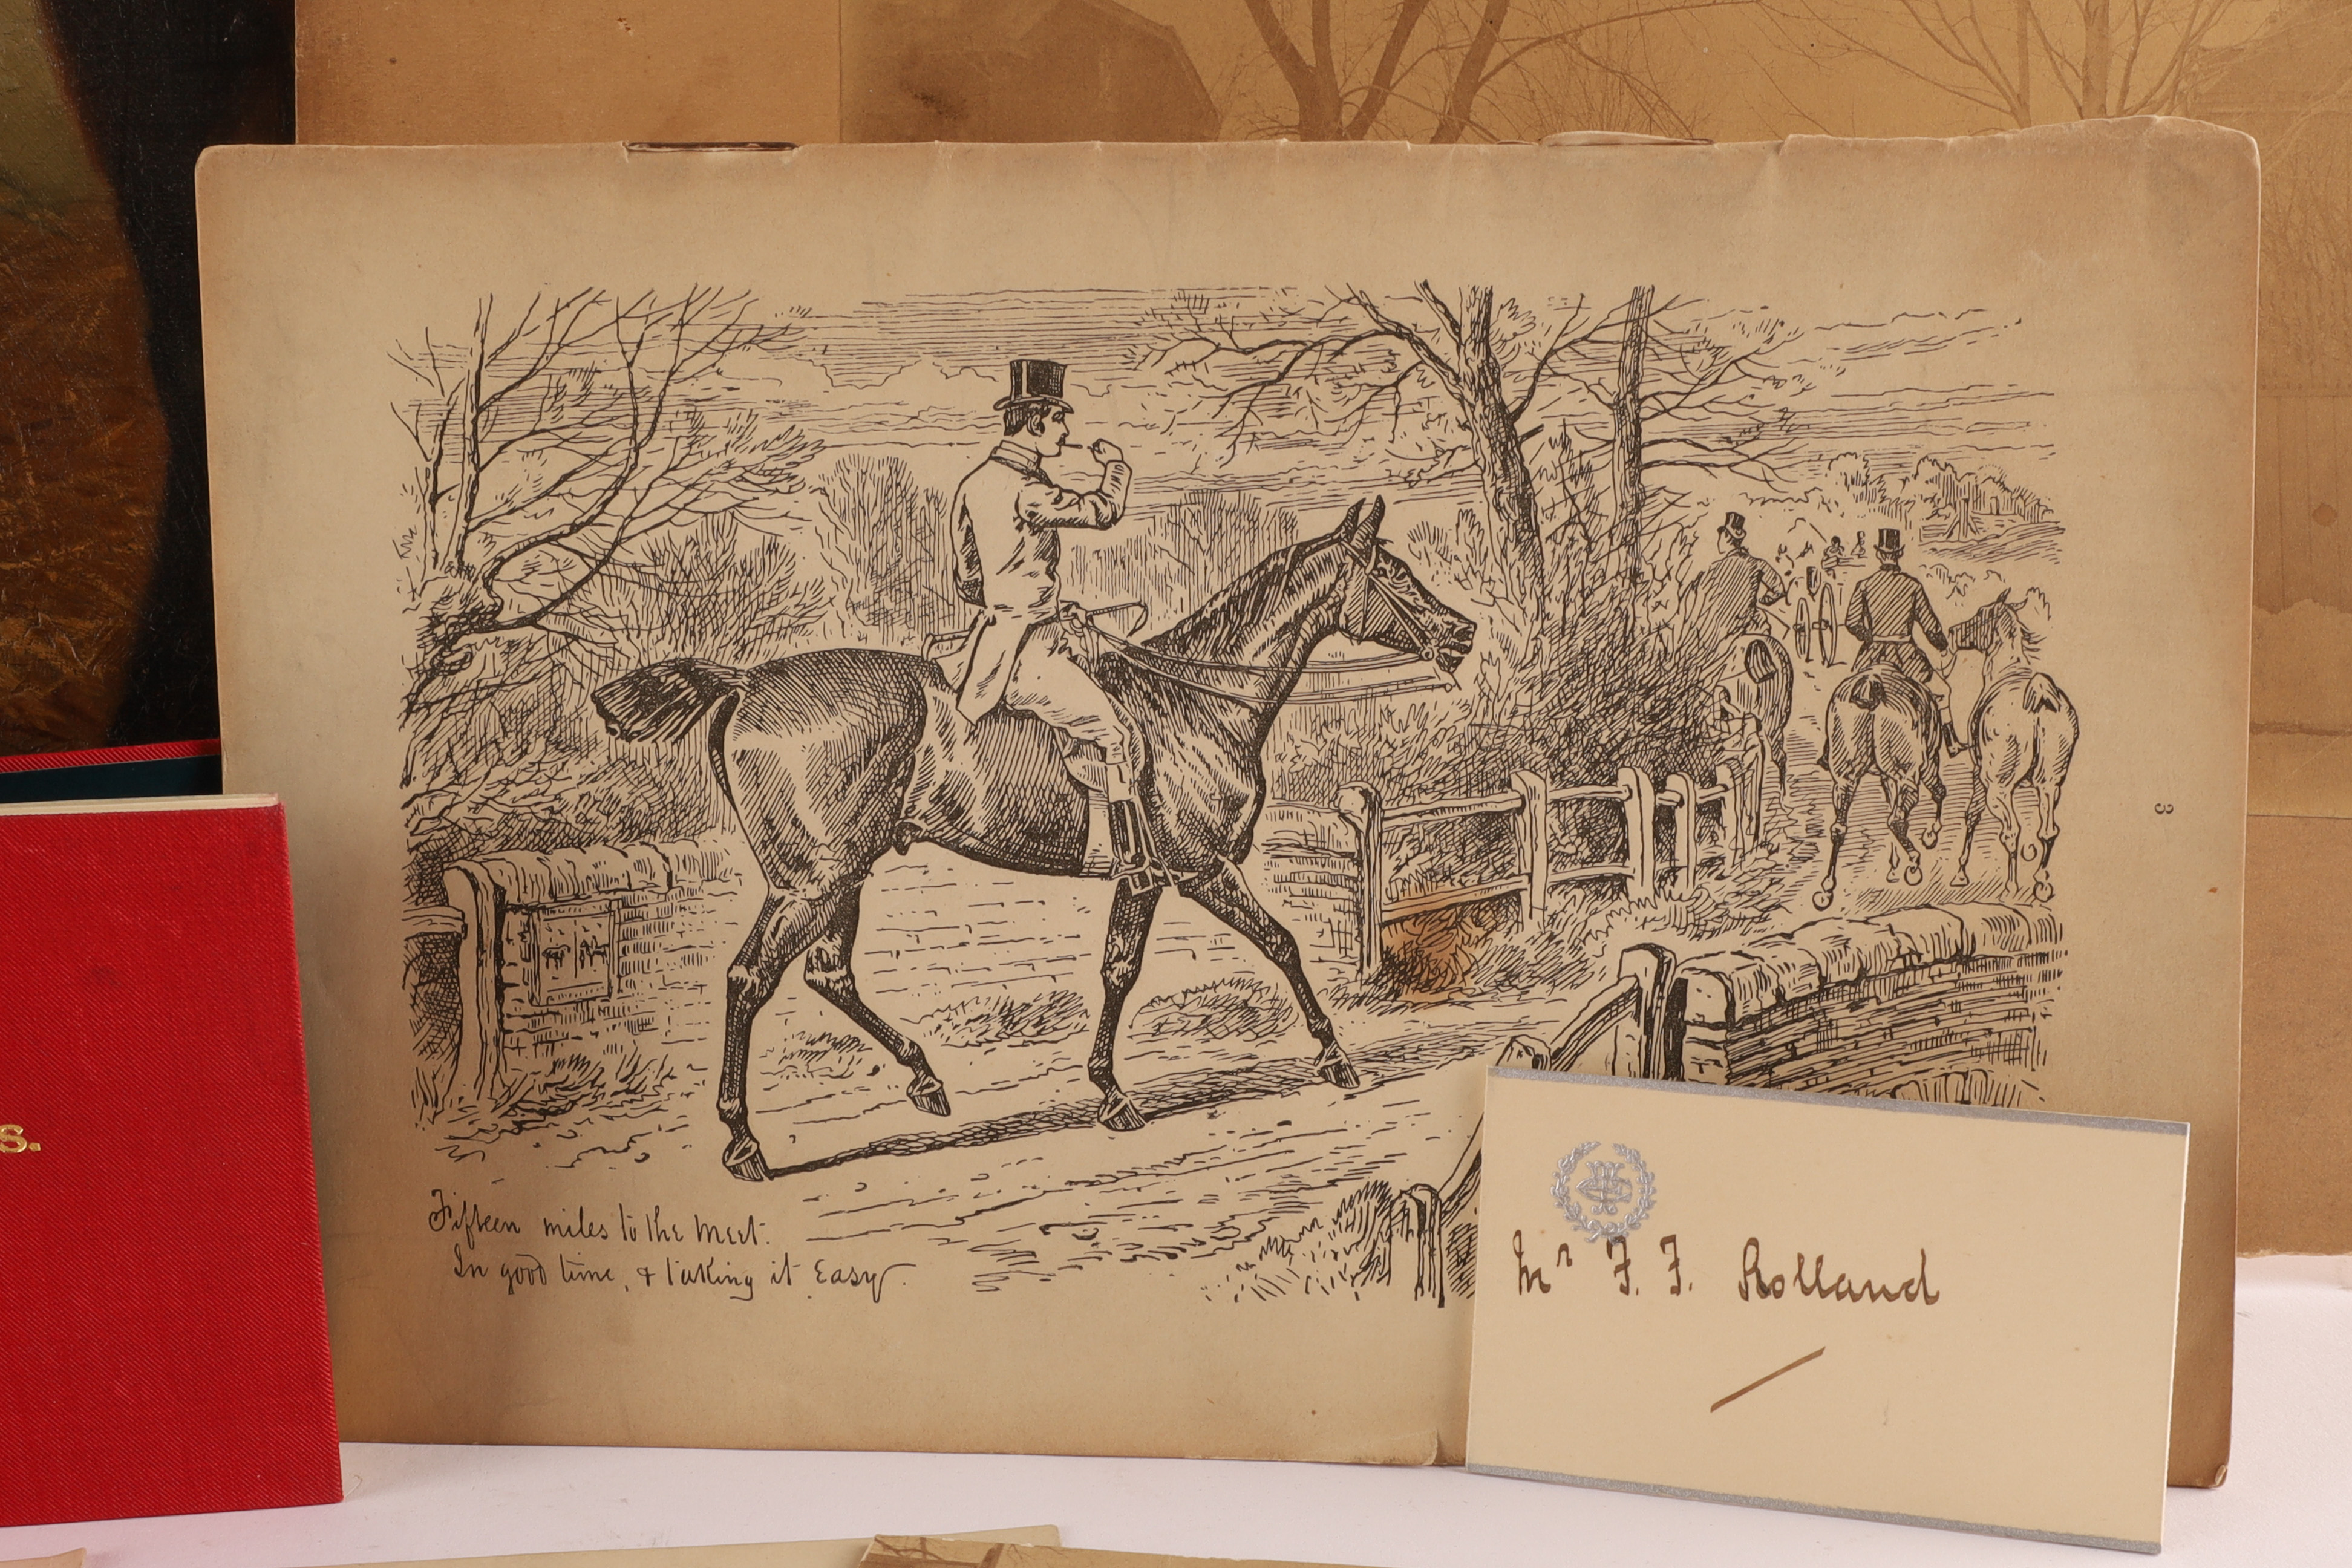 3
Fifteen miles to the Meet.
In good time, & taking it Easy.
Mr F. F. Rolland
s.